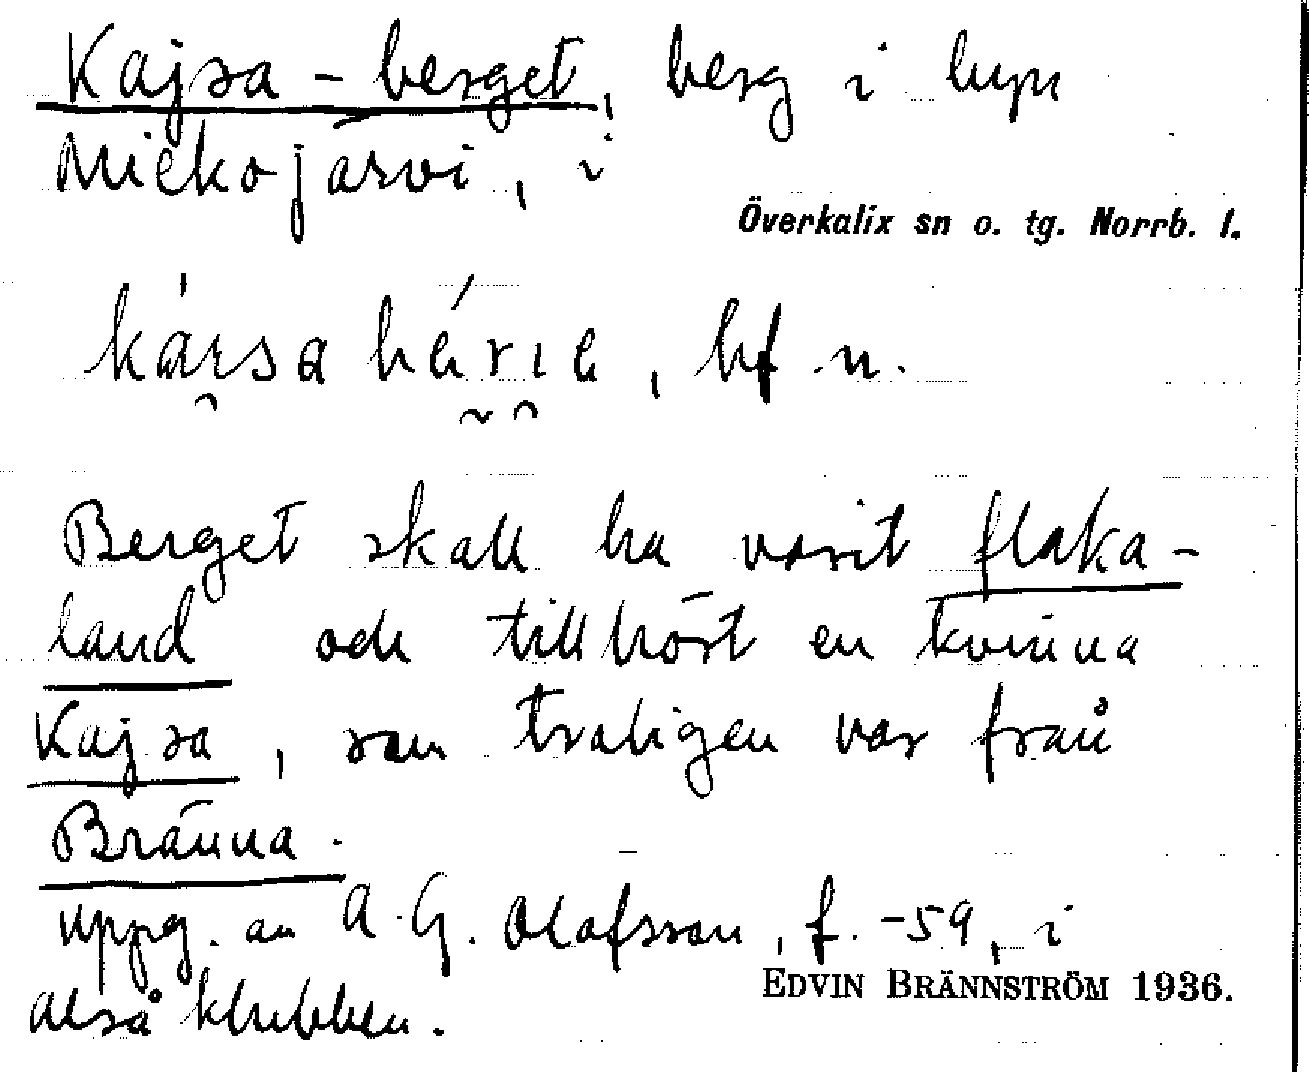 Kajsa-berget, berg i byn
Mickojärvi, i
Överkalix sn o. tg. Norrb. l.
bf n.
Berget skall ha varit flaka-
land och tillhört en kvinna
Kajsa, som troligen var från
Bränna.
uppg. av A. G. Olofsson, f. -59, i
Alså klubben.
EDVIN BRÄNNSTRÖM 1936.